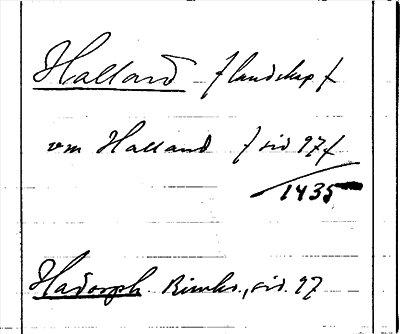 Halland /landskap/
om Halland /sid 97/
1435
Hadorph Rimkr., sid. 97